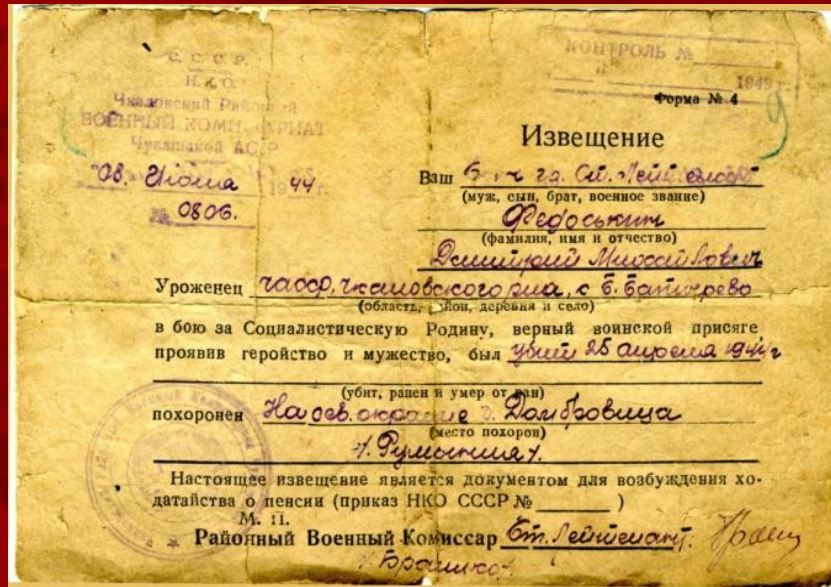 С. С. С. Р.
Н. К. О.
Чкаловский Районный
ВОЕННЫЙ КОМИССАРИАТ
Чувашской АССР
"08. Июля 1944 г.
№ 0806.
КОНТРОЛЬ №
1949 г.
Форма № 4
Извещение
Ваш Ст. Лейтенант
(муж, сын, брат, военное звание)
Федоськин
(фамилия, имя и отчество)
Дмитрий Михайлович
Уроженец ЧАССР, Чкаловского р-на, с Б. Батырево
(область, район, деревня и село)
в бою за Социалистическую Родину, верный воинской присяге
проявив геройство и мужество, был убит 25 апреля 1944 г
(убит, ранен и умер от ран)
похоронен На сев. окраине Домбровица
(место похорон)
/. Румыния /.
Настоящее извещение является документом для возбуждения хо-
датайства о пенсии (приказ НКО СССР № )
М. П.
Районный Военный Комиссар Ст. Лейтенант.